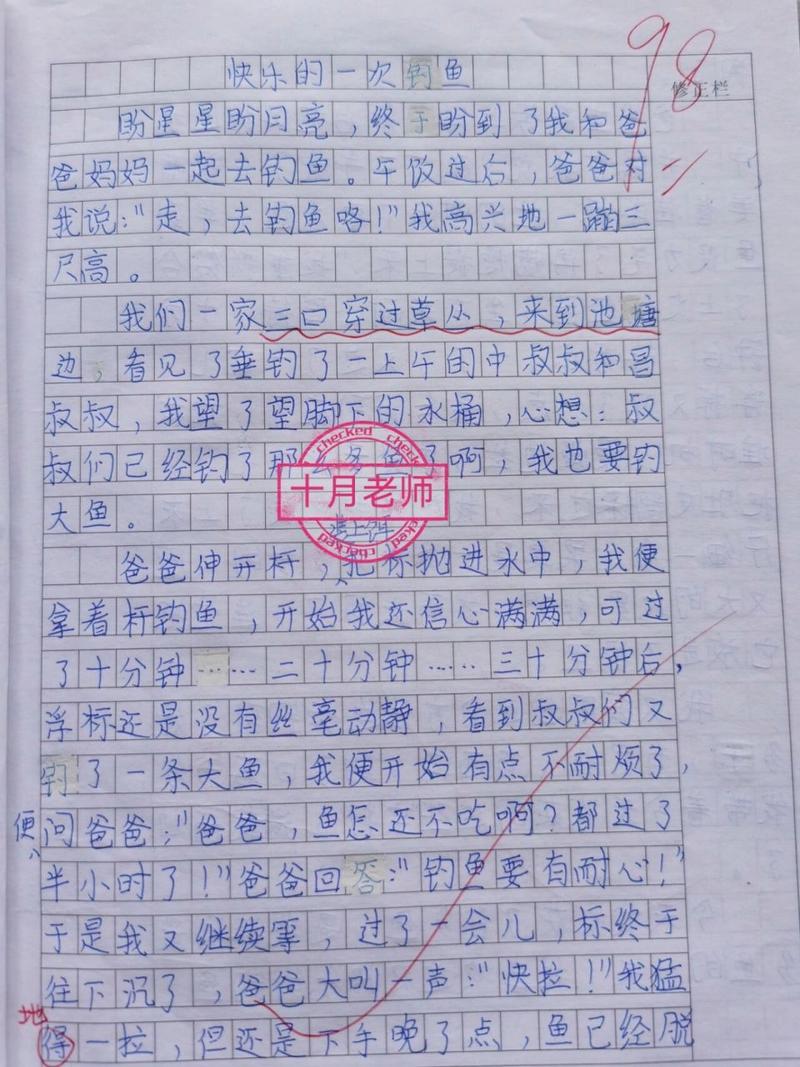 98
修正栏
快乐的一次钓鱼
盼星星盼月亮，终于盼到了我和爸
爸妈妈一起去钓鱼。午饭过后，爸爸对
我说："走，去钓鱼咯！"我高兴地一蹦三
尺高。
我们一家三口穿过草丛，来到池塘
边，看见了垂钓了一上午的申叔叔和昌
叔叔，我望了望脚下的水桶，心想：叔
叔们已经钓了那么多鱼了啊，我也要钓
大鱼。
checked checked
十月老师
checked checked
满上饵
爸爸伸开杆，把标抛进水中，我便
拿着杆钓鱼，开始我还信心满满，可过
了十分钟……二十分钟……三十分钟后，
浮标还是没有丝毫动静，看到叔叔们又
钓了一条大鱼，我便开始有点不耐烦了，
便问爸爸："爸爸，鱼怎还不吃啊？都过了
半小时了！"爸爸回答："钓鱼要有耐心！"
于是我又继续等，过了一会儿，标终于
往下沉了，爸爸大叫一声："快拉！"我猛
地
得一拉，但还是下手晚了点，鱼已经脱